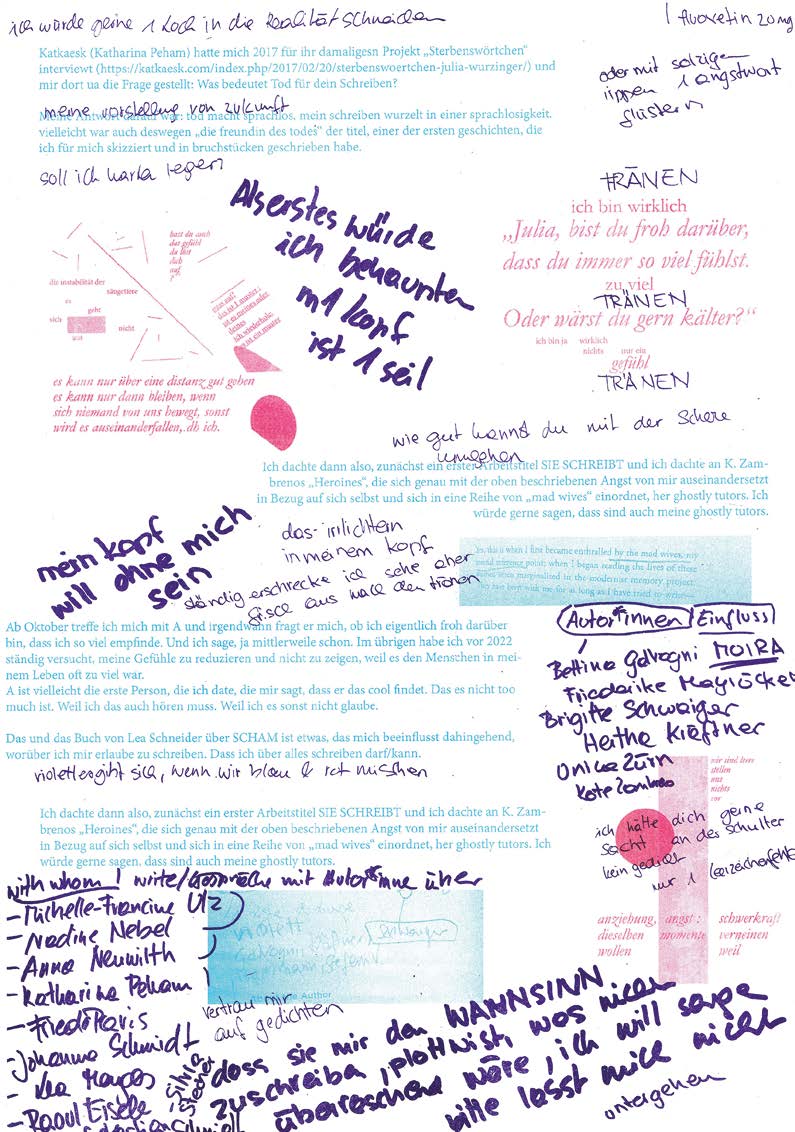 ich würde gerne 1 Loch in die Realität schneiden
1 fluoxetin 20mg
Katkaesk (Katharina Peham) hatte mich 2017 für ihr damaligesn Projekt „Sterbenswörtchen“
interviewt (https://katkaesk.com/index.php/2017/02/20/sterbenswoertchen-julia-wurzinger/) und
mir dort ua die Frage gestellt: Was bedeutet Tod für dein Schreiben?
oder mit salzigen
lippen 1 angstwort
flüstern
meine vorstellung von zukunft
Meine Antwort darauf war: tod macht sprachlos. mein schreiben wurzelt in einer sprachlosigkeit.
vielleicht war auch deswegen „die freundin des todes“ der titel, einer der ersten geschichten, die
ich für mich skizziert und in bruchstücken geschrieben habe.
soll ich karten legen
TRÄNEN
ich bin wirklich
„Julia, bist du froh darüber,
dass du immer so viel fühlst.
zu viel
TRÄNEN
Oder wärst du gern kälter?“
ich bin ja wirklich
nichts nur ein
gefühl
TRÄNEN
Als erstes würde
ich behaupten
m1 kopf
ist 1 seil
hast du auch
das gefühl
du löst
dich
auf
?
die instabilität der
säugetiere
es
geht
sich
nicht
aus
es kann nur über eine distanz gut gehen
es kann nur dann bleiben, wenn
sich niemand von uns bewegt, sonst
wird es auseinanderfallen,.dh ich.
wie gut kannst du mit der Schere
umgehen
Ich dachte dann also, zunächst ein erster Arbeitstitel SIE SCHREIBT und ich dachte an K. Zam-
brenos „Heroines“, die sich genau mit der oben beschriebenen Angst von mir auseinandersetzt
in Bezug auf sich selbst und sich in eine Reihe von „mad wives“ einordnet, her ghostly tutors. Ich
würde gerne sagen, dass sind auch meine ghostly tutors.
mein kopf
will ohne mich
sein
das irrlichtern
in meinem kopf
ständig erschrecke ich sehe eher
frisch aus nach den tränen
yes, this is when I first became enthralled by the mad wives, my
point; when I began reading the lives of these
women marginalized in the modernist memory project.
been with me for as long as I have tried to write
Ab Oktober treffe ich mich mit A und irgendwann fragt er mich, ob ich eigentlich froh darüber
bin, dass ich so viel empfinde. Und ich sage, ja mittlerweile schon. Im übrigen habe ich vor 2022
ständig versucht, meine Gefühle zu reduzieren und nicht zu zeigen, weil es den Menschen in mei-
nem Leben oft zu viel war.
A ist vielleicht die erste Person, die ich date, die mir sagt, dass er das cool findet. Das es nicht too
much ist. Weil ich das auch hören muss. Weil ich es sonst nicht glaube.
Autor*innen Einfluss
Bettina Galvagni MOIRA
Friederike Mayröcker
Brigitte Schwaiger
Hertha Kräftner
Unica Zürn
Kate Zambreno
Das und das Buch von Lea Schneider über SCHAM ist etwas, das mich beeinflusst dahingehend,
worüber ich mir erlaube zu schreiben. Dass ich über alles schreiben darf/kann.
violett ergibt sich, wenn wir blau & rot mischen
wir sind leere
stellen
mit
nichts
vor
ich hätte dich gerne
sacht an der schulter
kein gedicht
nur 1 leerzeichenfehler
Ich dachte dann also, zunächst ein erster Arbeitstitel SIE SCHREIBT und ich dachte an K. Zam-
brenos „Heroines“, die sich genau mit der oben beschriebenen Angst von mir auseinandersetzt
in Bezug auf sich selbst und sich in eine Reihe von „mad wives“ einordnet, her ghostly tutors. Ich
würde gerne sagen, dass sind auch meine ghostly tutors.
anziehung, angst : schwerkraft
dieselben momente verneinen
wollen weil
with whom I write/Gespräche mit Autor*inne über
– Michelle-Francine Ulz
– Nadine Nebel
– Anna Neuwirth
– Katharina Peham
– Fredi
– Johanna Schmidt
– Lea
– Raoul Eisele
Schmidt
Silvia
violett
schwaiger
Author
vertrau mir
auf gedichten
dass sie mir den WAHNSINN
zuschreiben, plottwist, was nicht
überraschend wäre, ich will sagen
bitte lasst mich nicht
untergehen